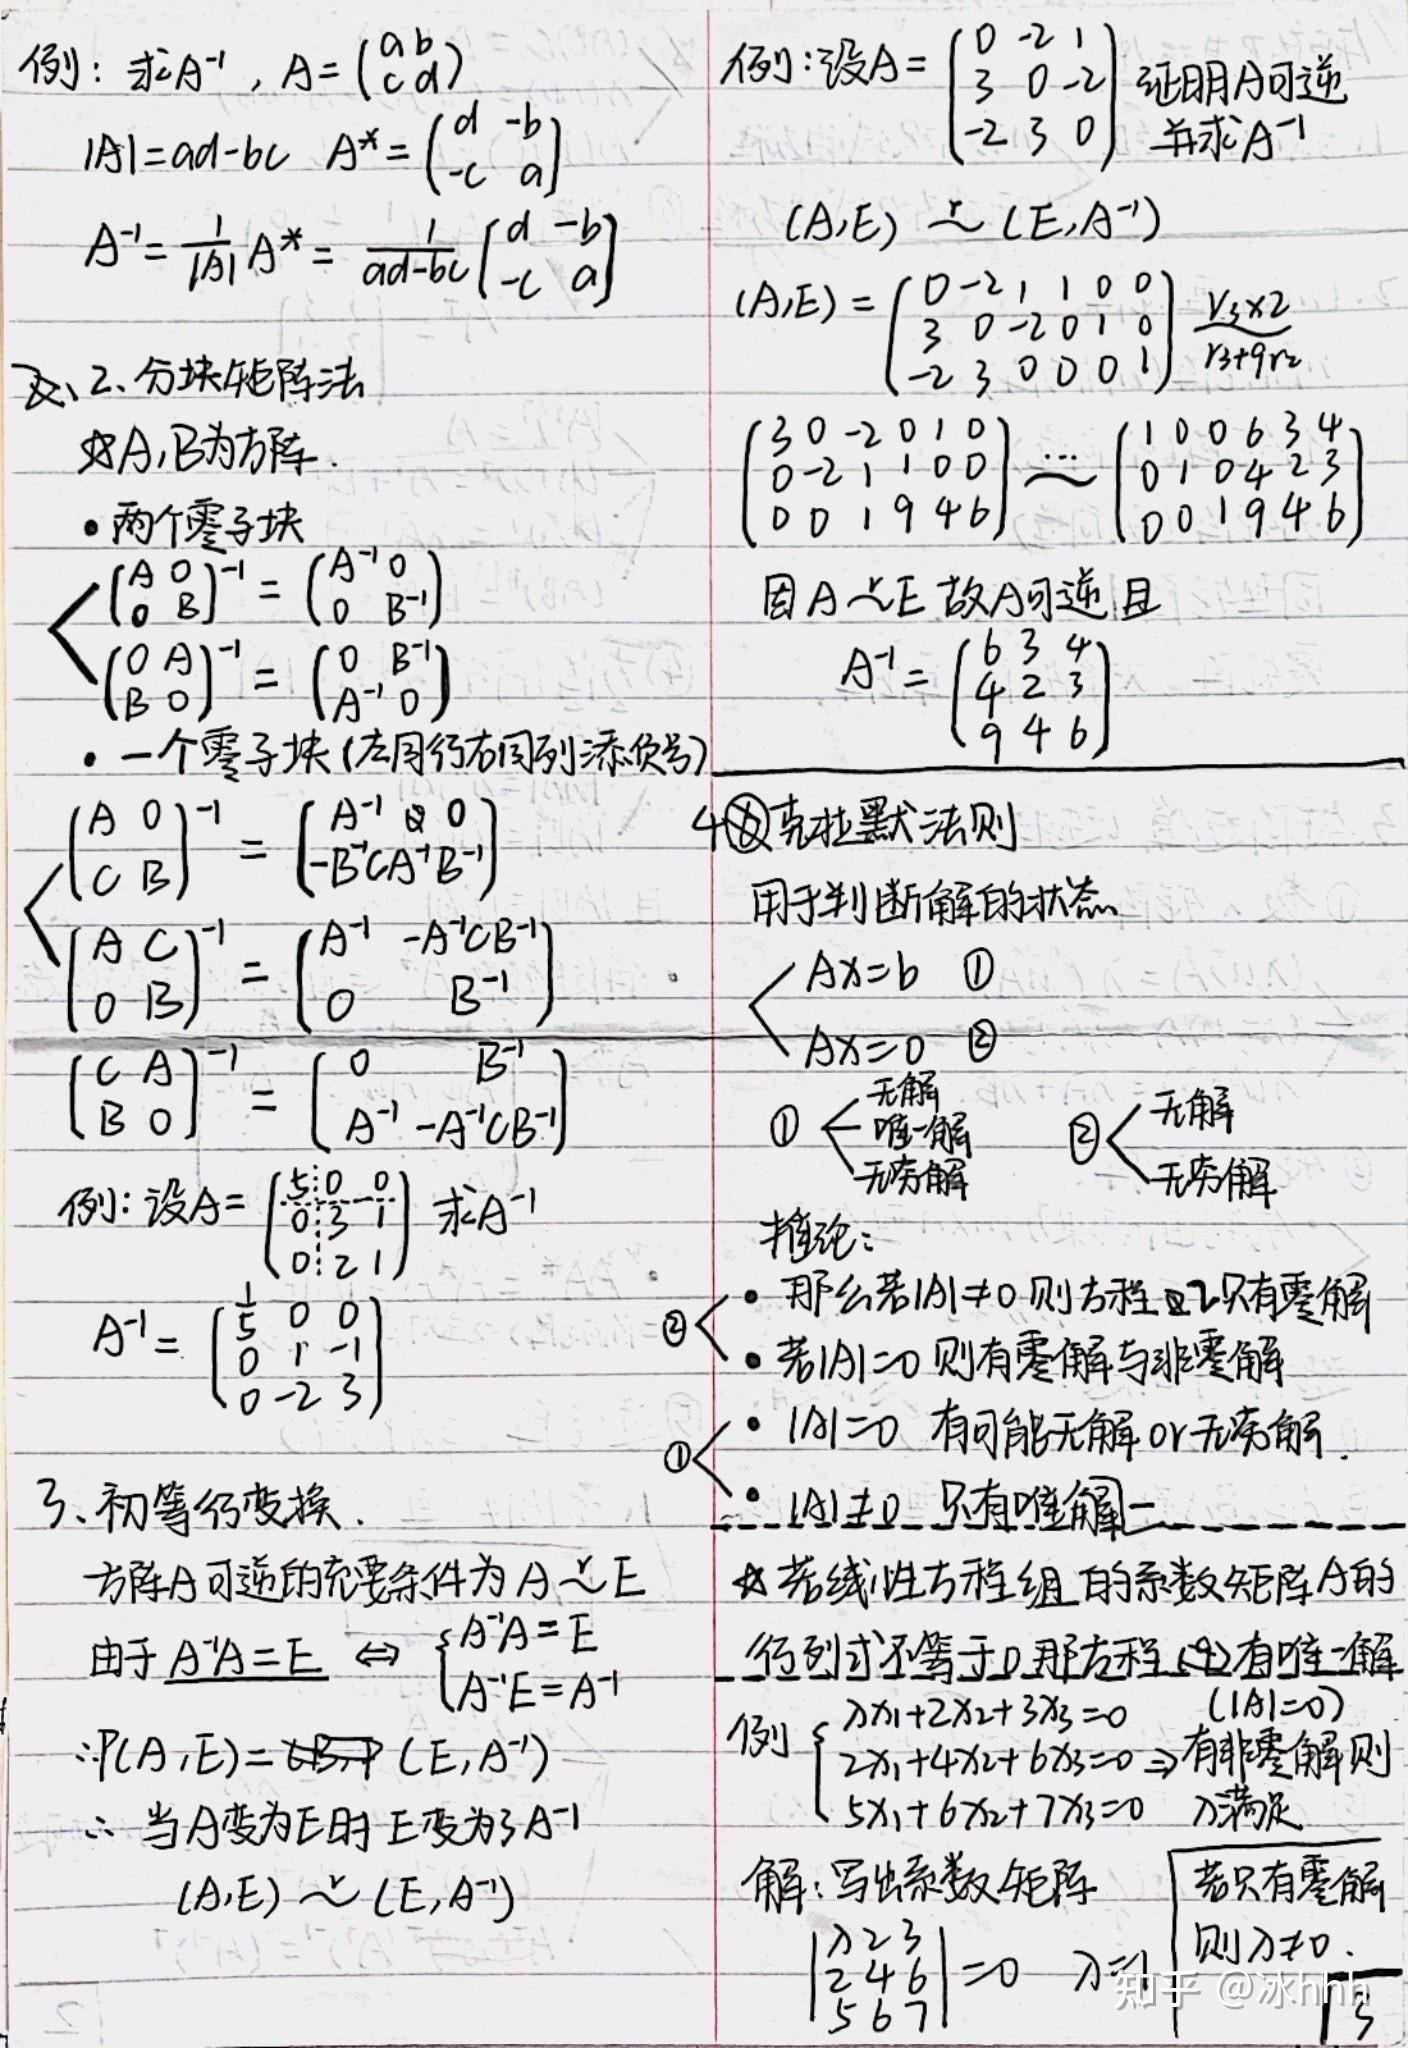 例：求A⁻¹，A=(a b
c d)
|A|=ad-bc A*=(d -b
-c a)
A⁻¹=1/|A| A*=1/(ad-bc) (d -b
-c a)
2、分块矩阵法
☆A,B为方阵.
•两个零子块
(A 0
0 B)⁻¹=(A⁻¹ 0
0 B⁻¹)
(0 A
B 0)⁻¹=(0 B⁻¹
A⁻¹ 0)
•一个零子块(左同行右同列添负号)
(A 0
C B)⁻¹=(A⁻¹ 0
-B⁻¹CA⁻¹ B⁻¹)
(A C
0 B)⁻¹=(A⁻¹ -A⁻¹CB⁻¹
0 B⁻¹)
(C A
B 0)⁻¹=(0 B⁻¹
A⁻¹ -A⁻¹CB⁻¹)
例：设A=(5 0 0
0 3 1
0 2 1) 求A⁻¹
A⁻¹=(1/5 0 0
0 1 -1
0 -2 3)
3、初等行变换.
方阵A可逆的充要条件为A r~ E
由于A⁻¹A=E ⇔ {A⁻¹A=E
A⁻¹E=A⁻¹
∴P(A,E)=(E,A⁻¹)
∴当A变为E时E变为了A⁻¹
(A,E) r~ (E,A⁻¹)
例：设A=(0 -2 1
3 0 -2
-2 3 0) 证明A可逆
并求A⁻¹
(A,E) r~ (E,A⁻¹)
(A,E)=(0 -2 1 1 0 0
3 0 -2 0 1 0
-2 3 0 0 0 1) r₃×2
r₃+9r₂
(3 0 -2 0 1 0
0 -2 1 1 0 0
0 0 1 9 4 6) ...~ (1 0 0 6 3 4
0 1 0 4 2 3
0 0 1 9 4 6)
因A r~ E 故A可逆且
A⁻¹=(6 3 4
4 2 3
9 4 6)
4☆克拉默法则
用于判断解的状态
Ax=b ①
Ax=0 ②
① 无解
唯一解
无穷解
② 无解
无穷解
推论：
②•那么若|A|≠0则方程2只有零解
•若|A|=0则有零解与非零解
①•|A|=0 有可能无解or无穷解.
•|A|≠0 只有唯解一
☆若线性方程组的系数矩阵A的
行列式不等于0那方程有唯一解
例{λx₁+2x₂+3x₃=0 (|A|=0)
2x₁+4x₂+6x₃=0⇒有非零解则
5x₁+6x₂+7x₃=0 λ满足
解：写出系数矩阵
|λ 2 3
2 4 6
5 6 7|=0 λ=1
若只有零解
则λ≠0.
知乎 @冰hhh
3